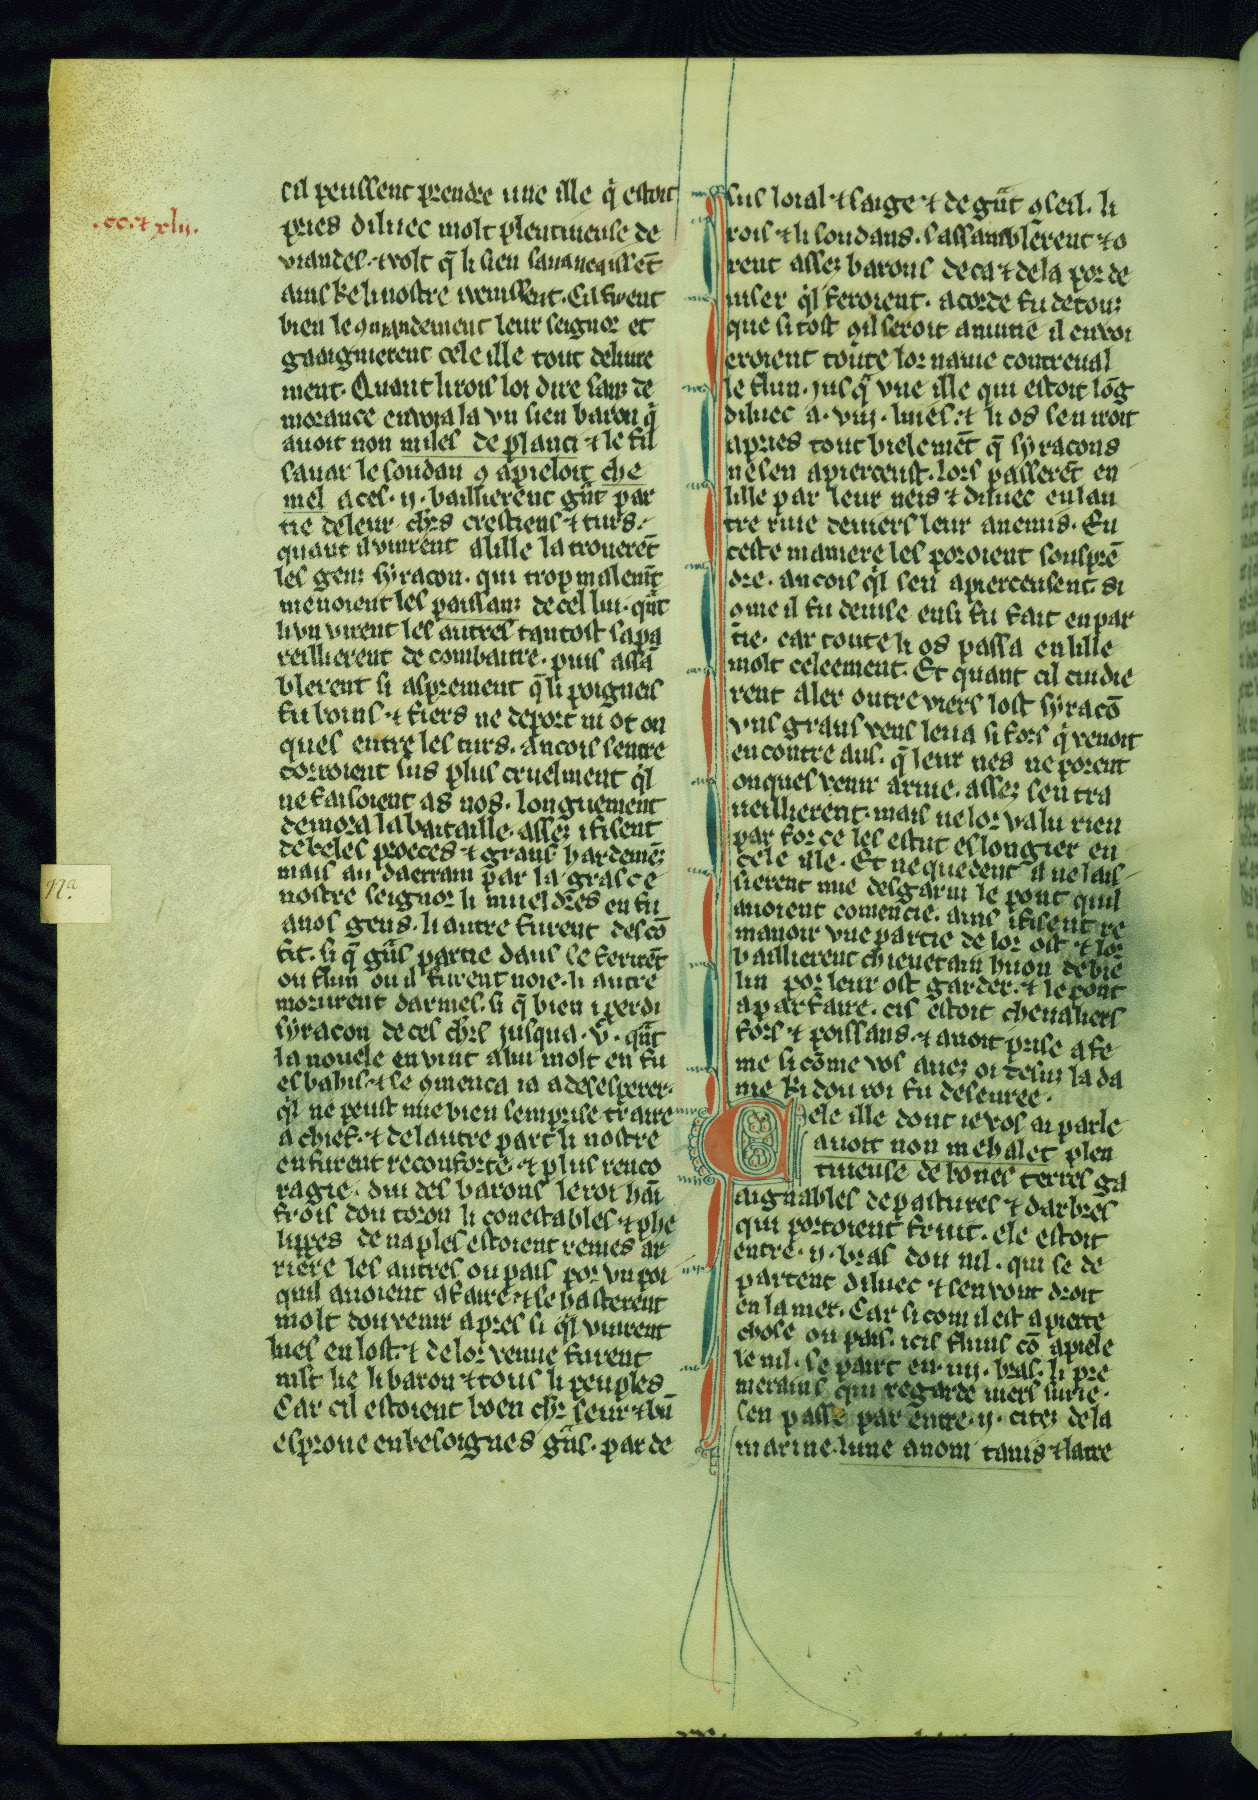 .cc.⁊ xlij.
cil peussent prendre une isle q̃ estoit
pries diluec molt plentiueuse de
viandes. ⁊ volt q̃ li sien sauancaissẽt
ains ke li nostre i venissent. Cil firent
bien le ꝯmandement leur seignor et
gaaignierent cele ille tout deliure
ment. Quant li rois loi dire sanz de
morance enuoia la vn sien baron q̃
auoit non miles de planci ⁊ le fil
sauar le soudan ꝯ apieloit che
mel a ces .ij. baillierent gñt par
tie de leur chrs crestiens ⁊ turs.
quant il vinrent a lille la trouerẽt
les genz syracon. qui trop malemẽt
menoient les paissanz de cel liu. qñt
li vn virent les autres tantost sapa
reillierent de combatre. puis assã
blerent si asprement q̃ li poigneis
fu boins ⁊ fiers ne deport ni ot on
ques entre les turs. ancois sentre
corroient sus plus cruelment q̃l
ne faisoient as nos. longuement
demora la bataille. assez i fisent
de beles proeces ⁊ grans hardemẽz
mais au daerrain par la grasce
nostre seignor li mieldres en fu
a nos gens. li autre furent descõ
fit. si q̃ gñs partie daus se ferirẽt
ou flun ou il furent noie. li autre
morurent darmes. si q̃ bien i perdi
syracon de ces chrs jusqua .v. qñt
la nouele en vint a lui molt en fu
esbahis. ⁊ se ꝯmenca ia a desesperer.
q̃l ne peust mie bien semprise traire
a chief. ⁊ de lautre part li nostre
en furent reconforte. ⁊ plus renco
ragie. dui des barons le roi hãi
frois dou toron li conestables ⁊ phe
lippes de naples estoient remes ar
riere les autres ou pais por vn poi
quil auoient afaire. ⁊ se hasterent
molt dou venir apres si q̃l vinrent
lues en lost. ⁊ de lor venue furent
mlt lie li baron ⁊ tous li peuples
Car cil estoient boen chr seur ⁊ bñ
esproue en besoignes gñs. par de
sus loial ⁊ saige ⁊ de gñt ꝯseil. li
rois ⁊ li soudans. sassamblerent ⁊ o
rent assez barons deca ⁊ dela por de
uiser q̃l feroient. acorde fu de touz
que si tost ꝯ il seroit anuitie il enuoi
eroient toute lor nauie contreual
le flun. jusq̃ vne ille qui estoit lõg
diluec a .viij. liues. ⁊ li os sen iroit
apries tout bielemẽt q̃ syracons
ne sen apierceust. lors passerẽt en
lille par leur neis ⁊ diluec en lau
tre riue deuiers leur anemis. En
ceste maniere les poroient souspre
dre. ancois q̃l sen apierceusent. si
ꝯme il fu deuise ensi fu fait en par
tie. car toute li os passa en lille
molt celeement. Et quant cil cuidie
rent aler outre viers lost syracõ
vns grans vens leua si fors q̃ venoit
encontre aus. q̃ leur nes ne porent
onques venir a riue. assez sen tra
ueillierent. mais ne lor valu rien
par force les estut eslongier en
cele ille. Et ne quedent il ne lais
sierent mie desgarni le pont quil
auoient comencie. ains i fisent re
manoir vne partie de lor ost ⁊ lor
baillierent chieuetain huon de bie
lin por leur ost garder. ⁊ le pont
a parfaire. cis estoit cheualiers
fors ⁊ poissans. ⁊ auoit prise a fe
me si cõme vos auez oi desuz la da
me ki dou roi fu deseuree.
Cele ille dont ie vos ai parle
auoit non mehalet plen
tiueuse de bones terres ga
aignables de pastures ⁊ darbres
qui portoient fruit. ele estoit
entre .ij. bras dou nil. qui se de
partent diluec ⁊ sen vont droit
en la mer. Car si com il est apierte
chose ou pais. icis fluns cõ apiele
le nil. se part en .iiij. bras. li pre
merains qui regarde viers surie.
sen passe par entre .ij. citez de la
marine. lune a nom tanis ⁊ latre